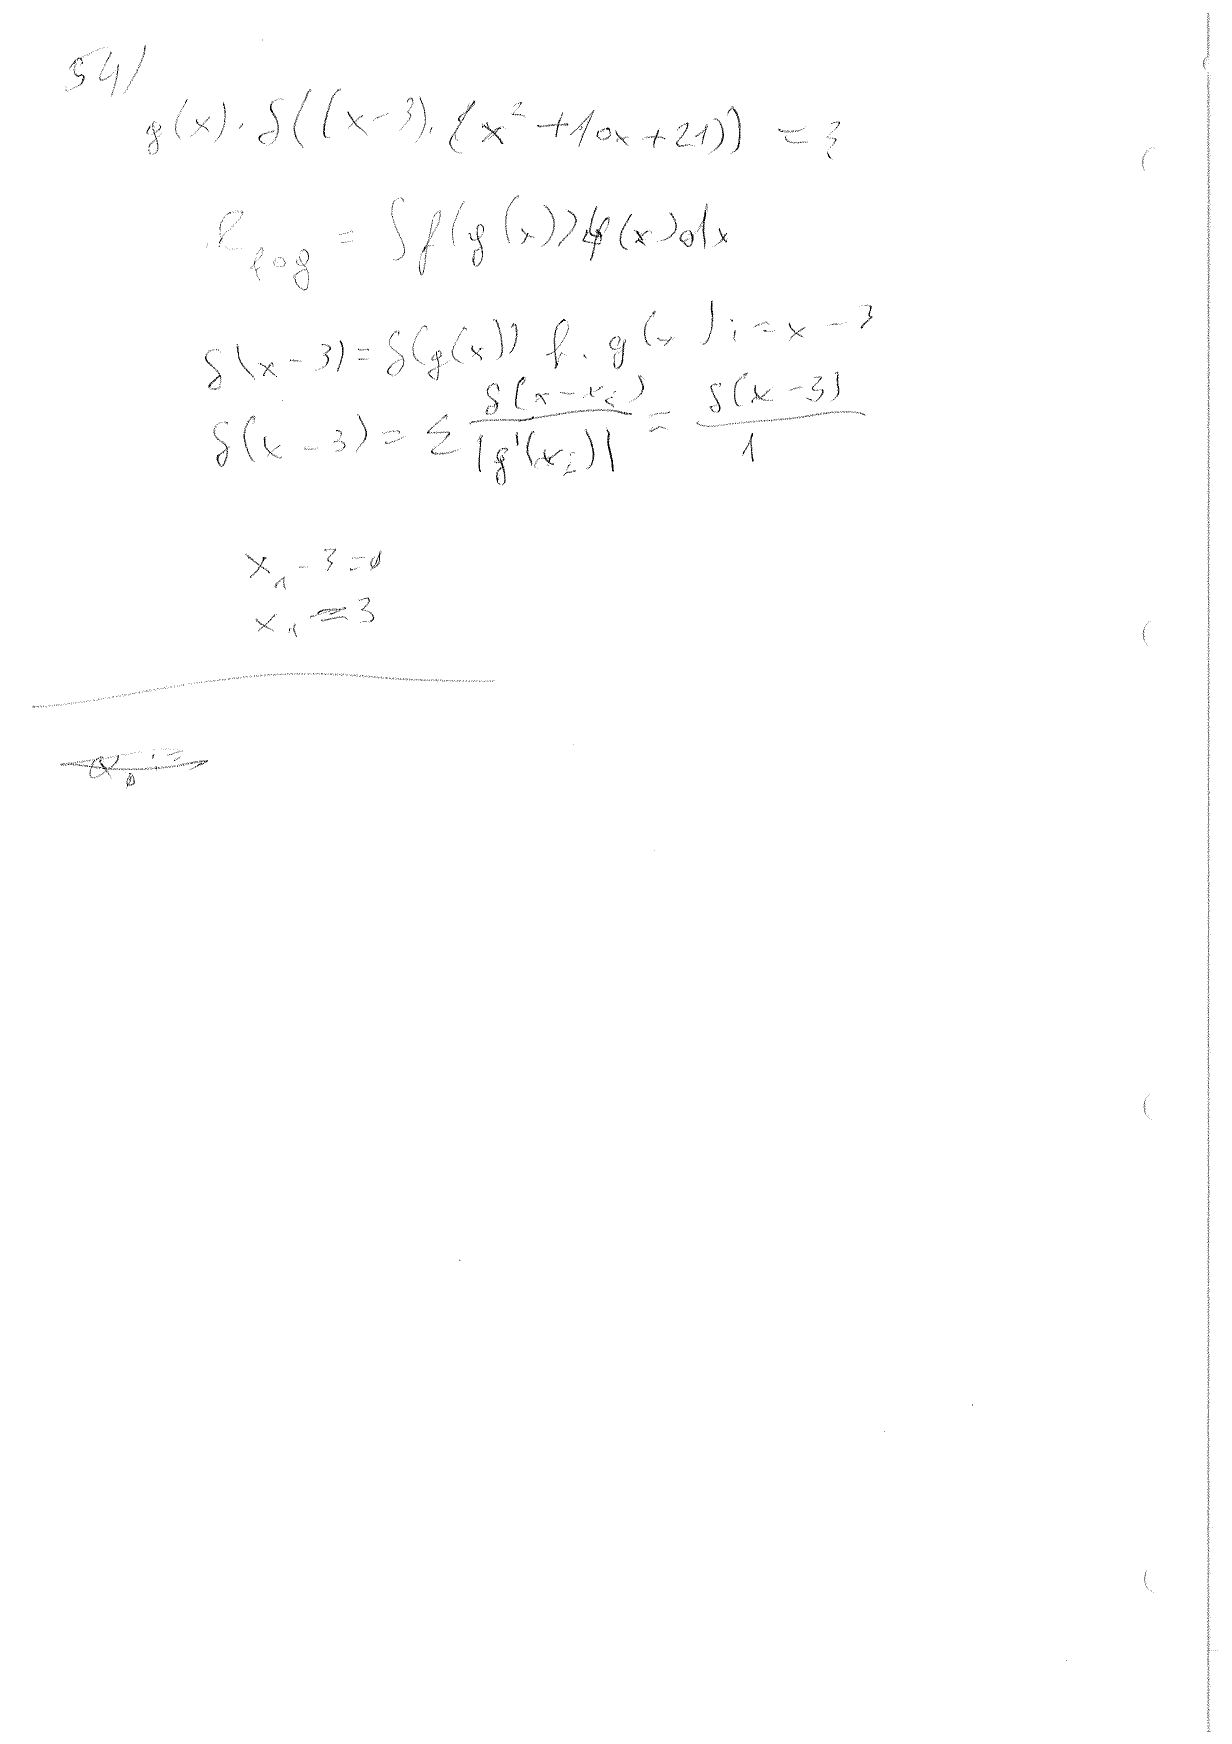 54)
g(x) · δ((x-3) · (x²+10x+21)) = ?
l_{f∘g} = ∫ f(g(x)) φ(x) dx
δ(x-3) = δ(g(x)) f. g(x) := x-3
δ(x-3) = Σ δ(x-x_i) / |g'(x_i)| = δ(x-3) / 1
x₁ - 3 = 0
x₁ = 3